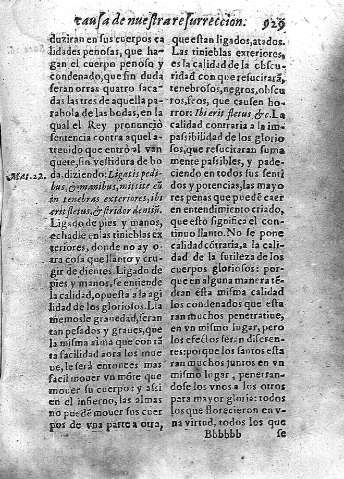 causa de nuestra resurreccion. 929
duziran en sus cuerpos ca
lidades penosas, que ha-
gan el cuerpo penoso y
condenado, que sin duda
seran otras quatro saca
das las tres de aquella pa-
rabola de las bodas, en la
qual el Rey pronunciò
sentencia contra aquel a-
treuido que entrò al van
quete, sin vestidura de bo
da, diziendo: Ligatis pedi-
Mat. 22.
bus, & manibus, mittite eũ
in tenebras exteriores, ibi
erit fletus, & stridor dentiũ.
Ligado de pies y manos,
echadle en las tinieblas ex
teriores, donde no ay o-
tra cosa que llanto y cru-
gir de dientes. Ligado de
pies y manos, se entiende
la calidad, opuesta a la agi
lidad de los gloriosos. Lla
memosle grauedad, seran
tan pesados y graues, que
la misma alma que con tã
ta facilidad aora los mue
ue, le serà entonces mas
facil mouer vn mõte que
mouer su cuerpo: y assi
en el infierno, las almas
no puedẽ mouer sus cuer
pos de vna parte a otra,
que estan ligados, atados.
Las tinieblas exteriores,
es la calidad de la obscu-
ridad con que resucitarã,
tenebrosos, negros, obscu
ros, feos, que causen hor-
ror: Ibi erit fletus &c. La
calidad contraria a la im-
passibilidad de los glorio
sos, que resucitaran suma
mente passibles, y pade-
ciendo en todos sus senti
dos y potencias, las mayo
res penas que puede caer
en entendimiento criado,
que esto significa el con-
tinuo llanto. No se pone
calidad cõtraria, a la cali-
dad de la sutileza de los
cuerpos gloriosos: por-
que en alguna manera tẽ-
dran esta misma calidad
los condenados que esta
ran muchos penetratiue,
en vn mismo lugar, pero
los efectos seran diferen-
tes: porque los santos esta
ran muchos juntos en vn
mismo lugar, penetran-
dose los vnos a los otros
para mayor gloria: todos
los que florecieron en v-
na virtud, todos los que
Bbbbbb se